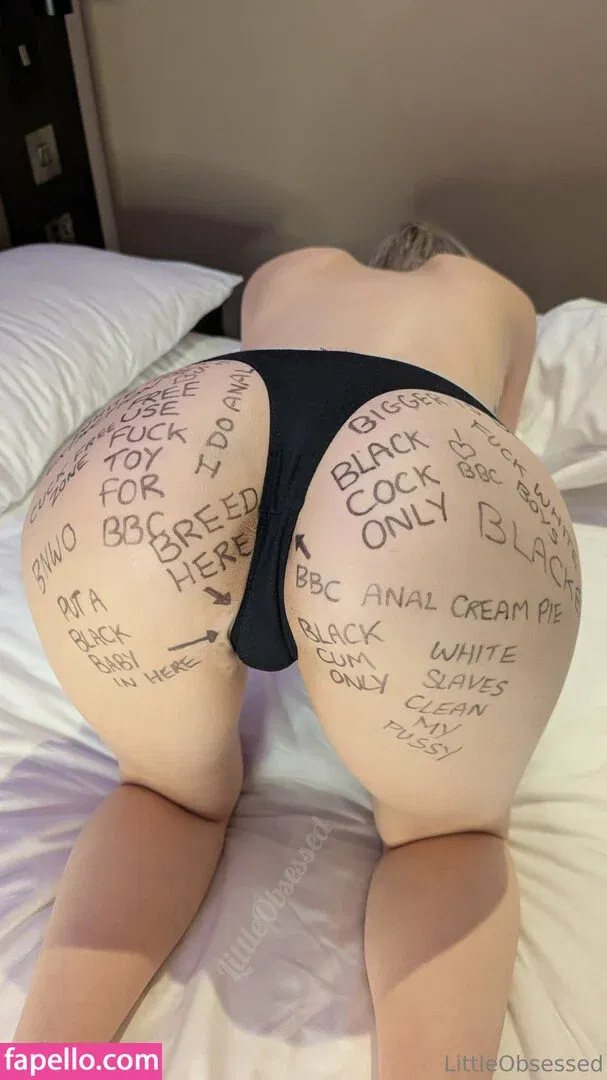 FREE
USE
FUCK
TOY
FOR
BBC
I DO ANAL
ZONE
BNWO
BREED
HERE
PUT A
BLACK
BABY
IN HERE
BIGGER
BLACK
COCK
ONLY
BBC
FUCK WHITE
BOYS
BLACK
BBC ANAL CREAM PIE
BLACK
CUM
ONLY
WHITE
SLAVES
CLEAN
MY
PUSSY
LittleObsessed
fapello.com
LittleObsessed